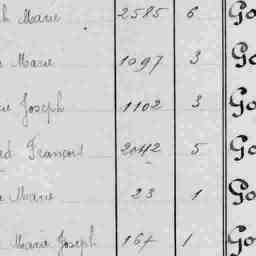 h Marie 2585 6 Go
Marie 1097 3 Go
Joseph 1102 3 Go
François 2042 5 Go
Marie 23 1 Go
Marie Joseph 167 1 Go